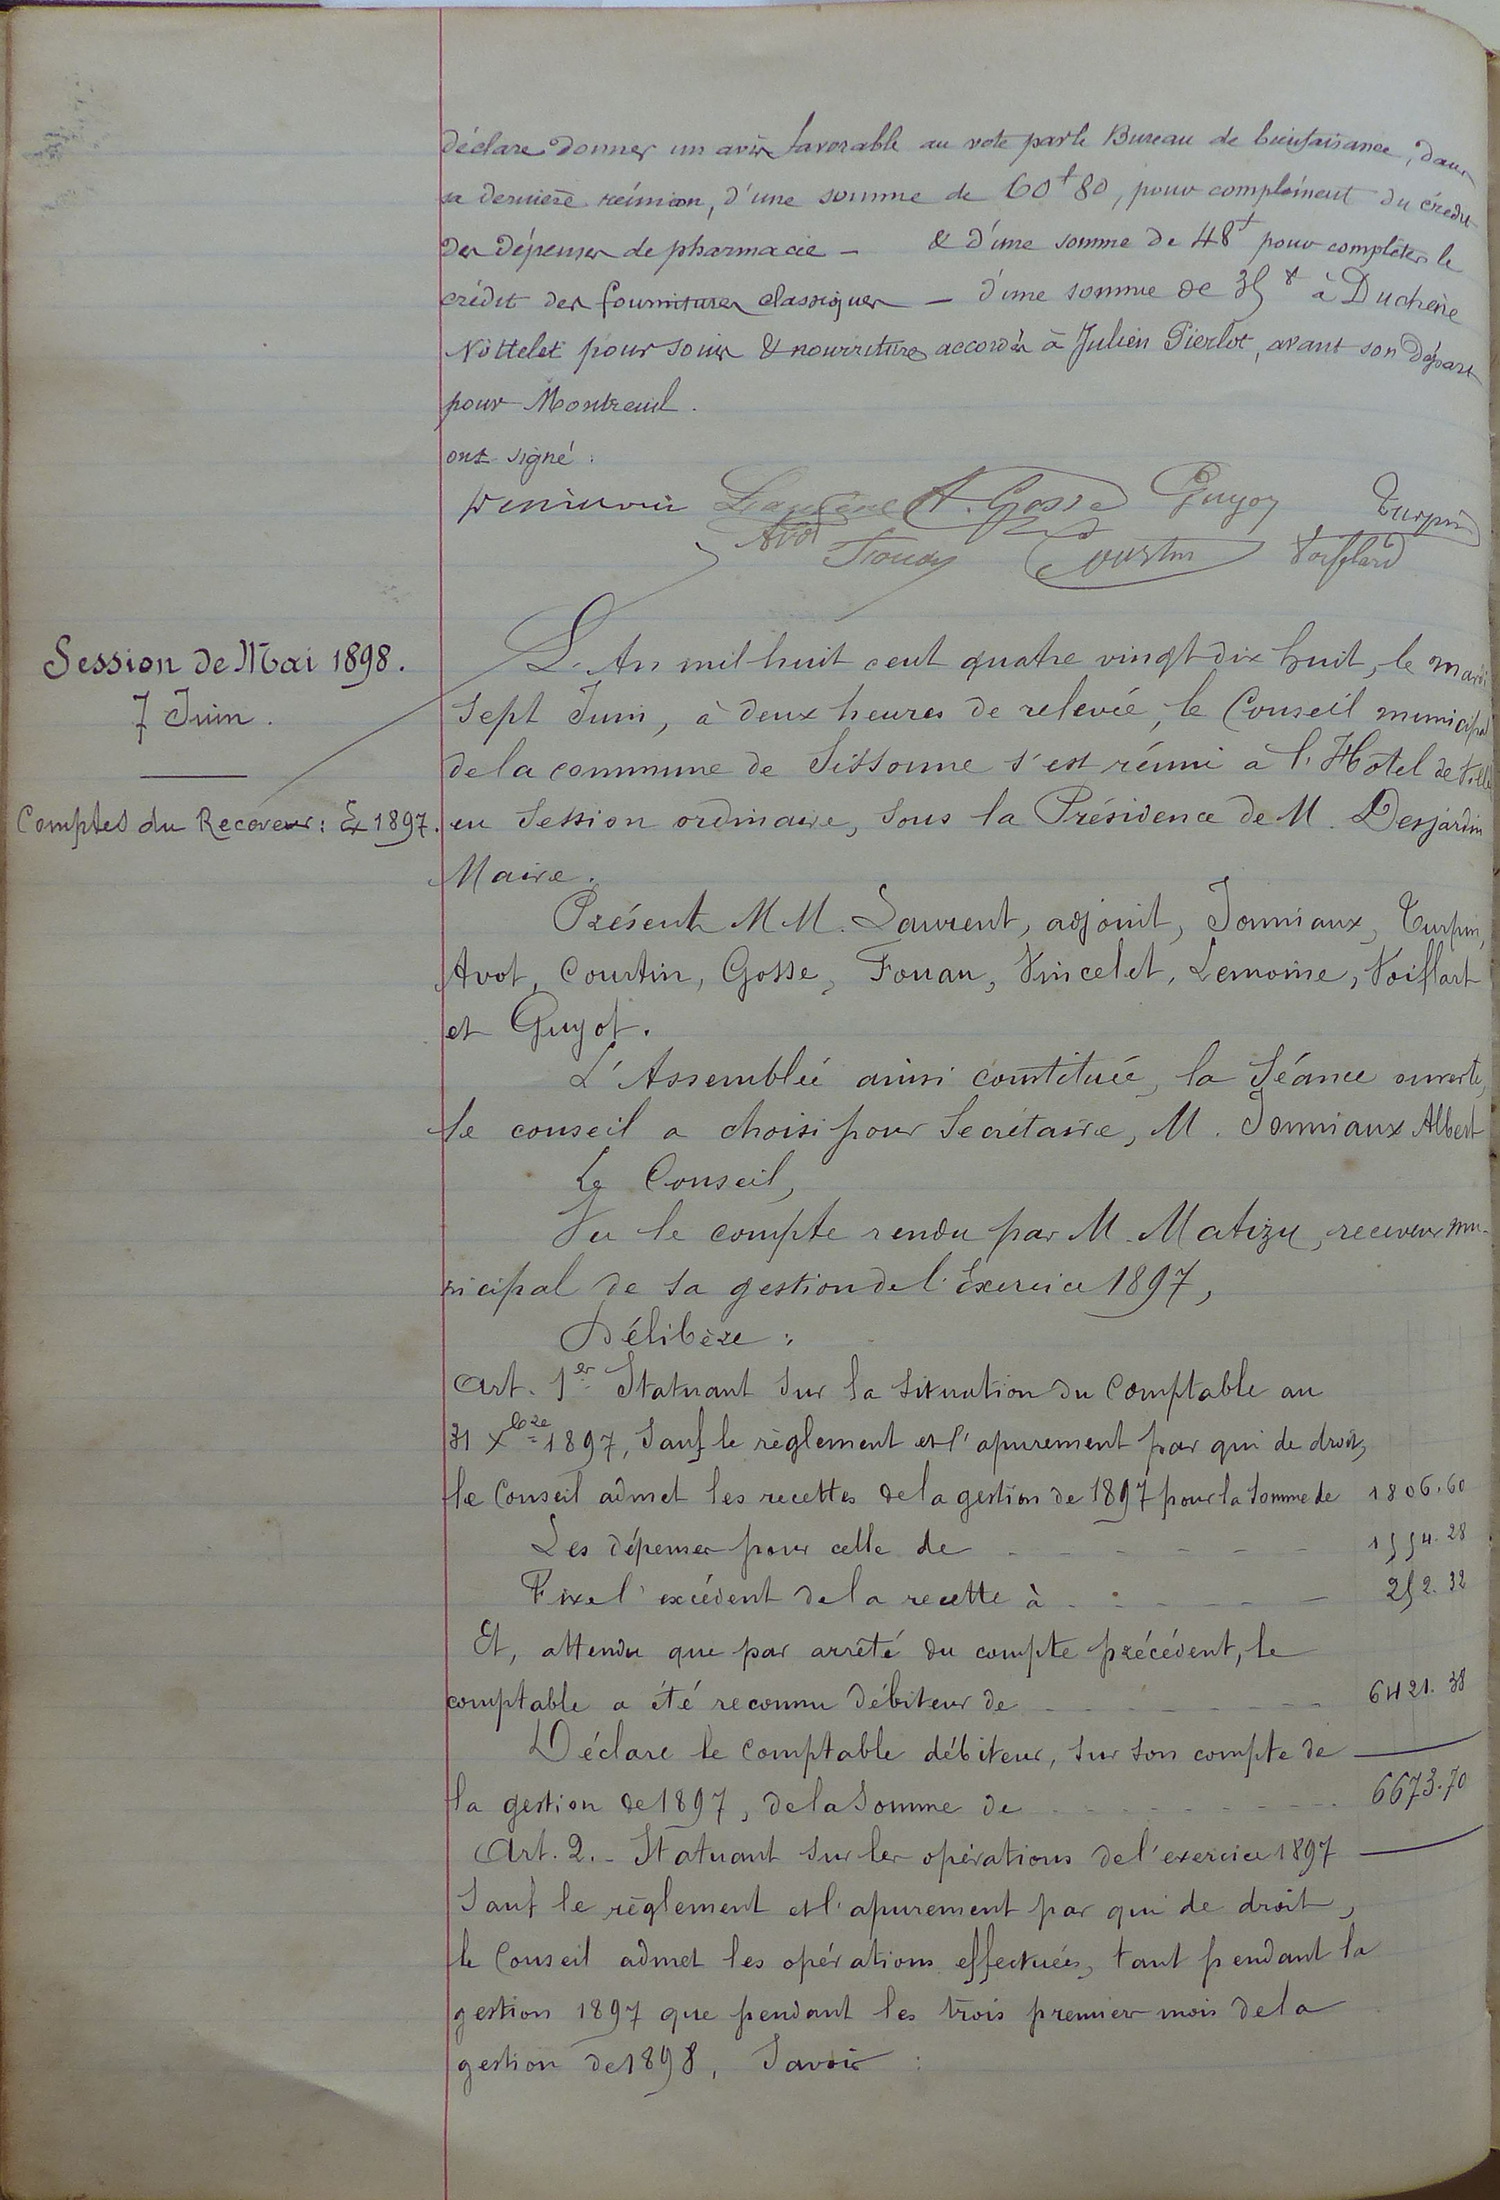 déclare donner un avis favorable au vote par le Bureau de bienfaisance, dans
sa dernière réunion, d'une somme de 60f 80, pour complément du crédit
des dépenses de pharmacie — & d'une somme de 48f pour compléter le
crédit des fournitures classiques — d'une somme de 35f à Duchêne
Nottelet pour soins & nourriture accordés à Julien Pierlot, avant son départ
pour Montreuil.
ont signé :
A. Gosse Guyot Turpin
Avot Fouan Courtin Voiflard
Session de Mai 1898.
7 Juin.
Comptes du Receveur : Ex 1897.
L'An mil huit cent quatre vingt dix huit, le mardi
Sept Juin, à deux heures de relevée, le Conseil municipal
de la commune de Sissonne s'est réuni à l'Hotel de Ville
en Session ordinaire, sous la Présidence de M. Desjardin
Maire.
Présents M M. Laurent, adjoint, Jonniaux, Turpin,
Avot, Courtin, Gosse, Fouan, Vincelet, Lemoine, Voiflart
et Guyot.
L'Assemblée ainsi constituée, la Séance ouverte,
le conseil a choisi pour Secrétaire, M. Jonniaux Albert
Le Conseil,
Vu le compte rendu par M. Matizu, receveur mu-
nicipal de sa gestion de l'Exercice 1897,
Délibère :
Art. 1er Statuant sur la situation du Comptable au
31 Xbre 1897, Sauf le règlement et l'apurement par qui de droit,
le Conseil admet les recettes de la gestion de 1897 pour la somme de 1806.60
Les dépenses pour celle de - - - - - - 1554.28
Fixe l'excédent de la recette à - - - - - - 252.32
Et, attendu que par arrêté du compte précédent, le
comptable a été reconnu débiteur de - - - - - - 6421.38
Déclare le Comptable débiteur, sur son compte de
la gestion de 1897, de la Somme de - - - - - - 6673.70
Art. 2. - Statuant sur les opérations de l'exercice 1897
Sauf le règlement et l'apurement par qui de droit,
le Conseil admet les opérations effectuées, tant pendant la
gestion 1897 que pendant les trois premiers mois de la
gestion de 1898, Savoir :